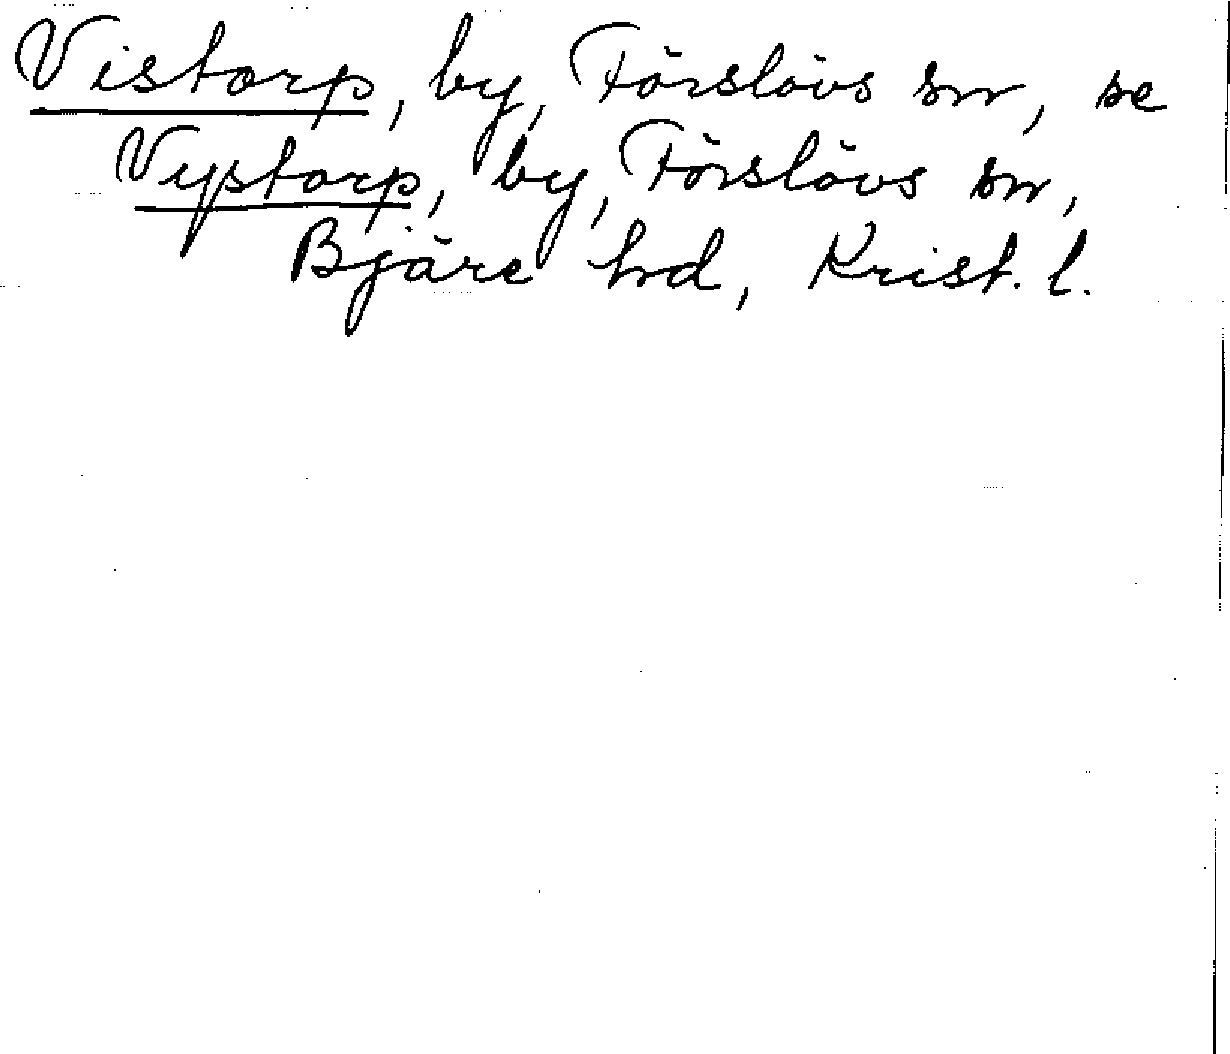 Vistorp, by, Förslövs sn, se
Vystorp, by, Förslövs sn,
Bjäre hd, Krist. l.